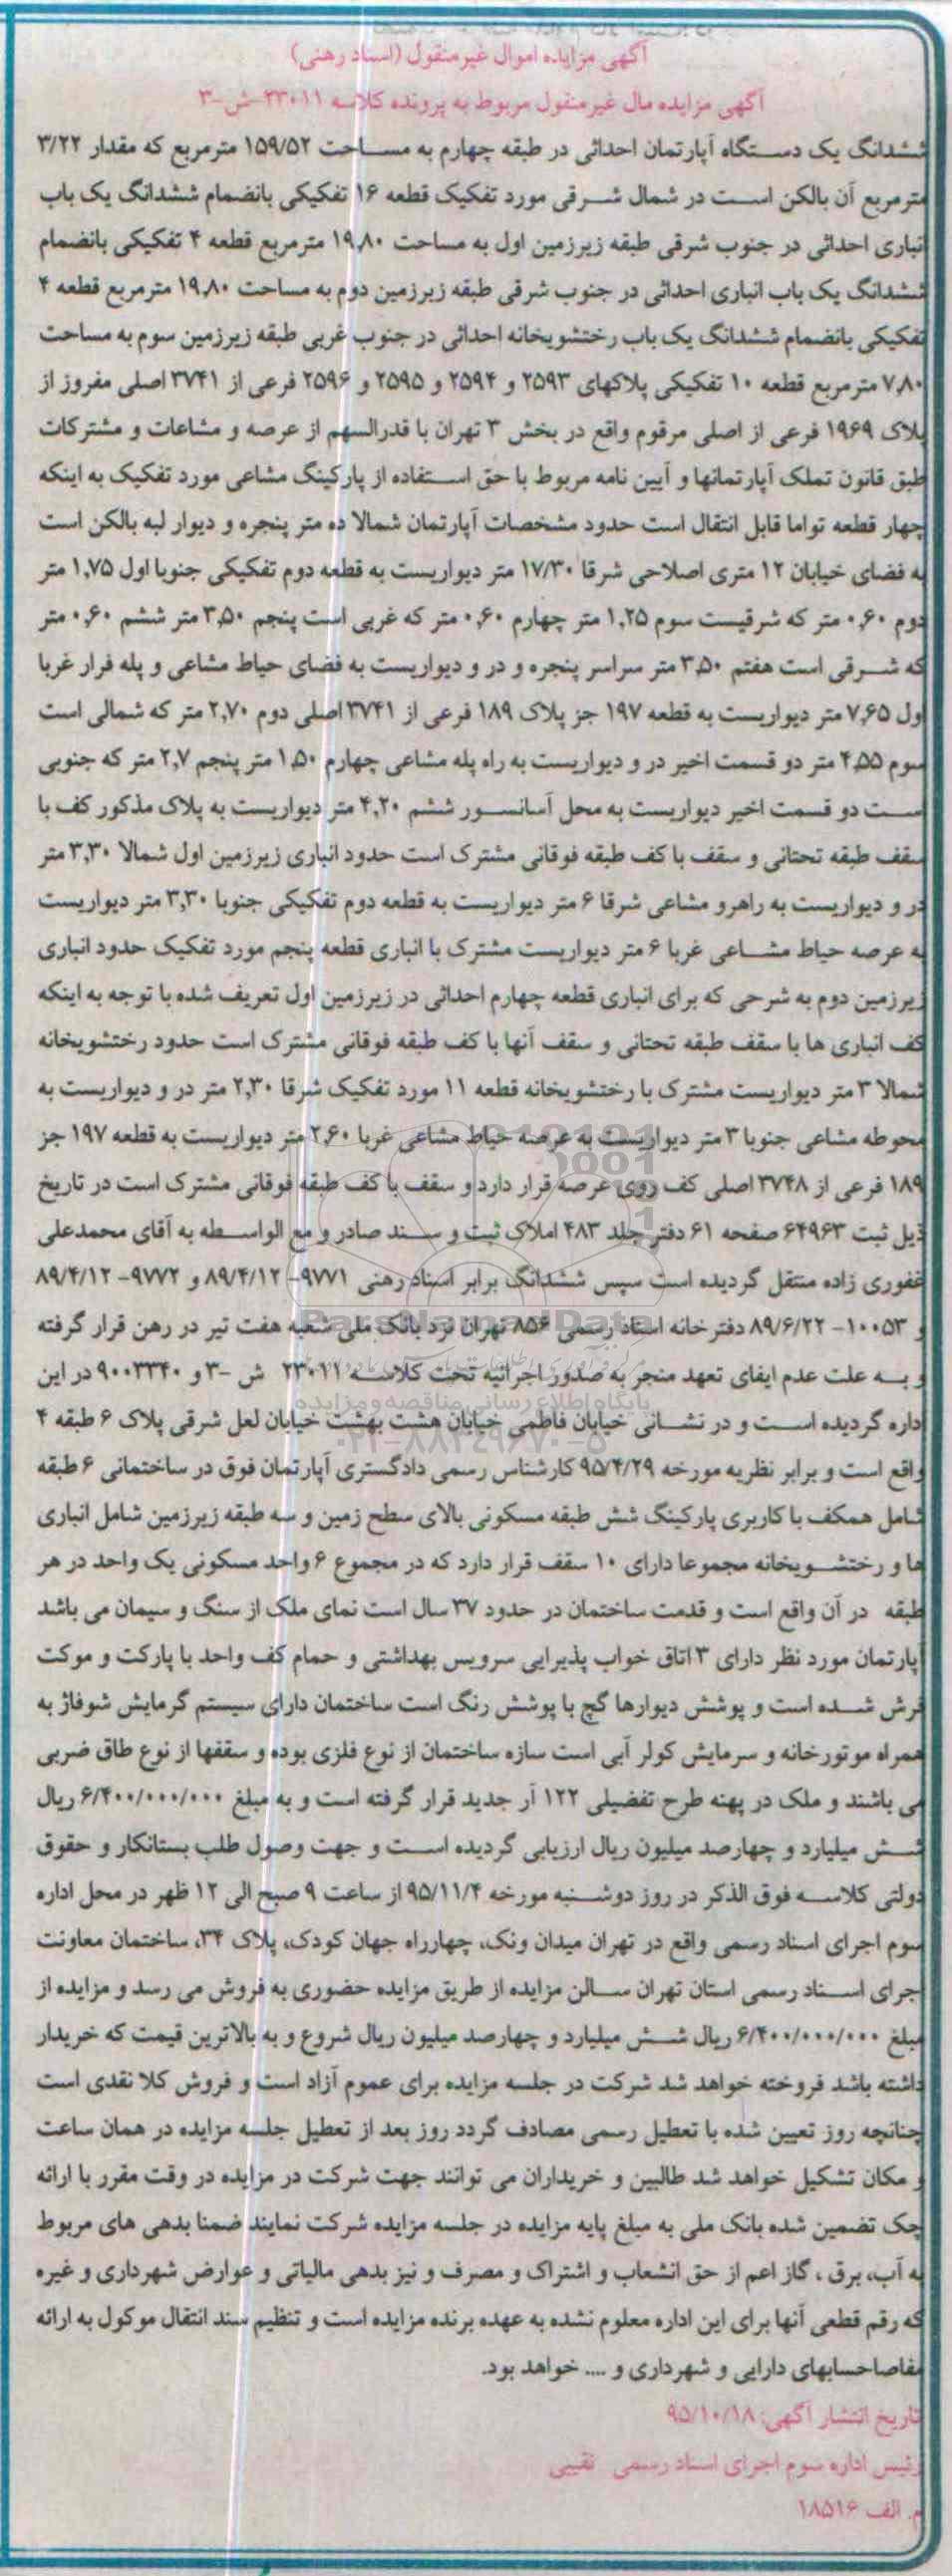 آگهی مزایده اموال غیرمنقول (اسناد رهنی)
آگهی مزایده مال غیرمنقول مربوط به پرونده کلاسه ۲۳۰۱۱-ش-۳
ششدانگ یک دستگاه آپارتمان احداثی در طبقه چهارم به مساحت ۱۵۹/۵۲ مترمربع که مقدار ۳/۲۲
مترمربع آن بالکن است در شمال شرقی مورد تفکیک قطعه ۱۶ تفکیکی بانضمام ششدانگ یک باب
انباری احداثی در جنوب شرقی طبقه زیرزمین اول به مساحت ۱۹٫۸۰ مترمربع قطعه ۴ تفکیکی بانضمام
ششدانگ یک باب انباری احداثی در جنوب شرقی طبقه زیرزمین دوم به مساحت ۱۹٫۸۰ مترمربع قطعه ۴
تفکیکی بانضمام ششدانگ یک باب رختشویخانه احداثی در جنوب غربی طبقه زیرزمین سوم به مساحت
۷٫۸۰ مترمربع قطعه ۱۰ تفکیکی پلاکهای ۲۵۹۳ و ۲۵۹۴ و ۲۵۹۵ و ۲۵۹۶ فرعی از ۳۷۴۱ اصلی مفروز از
پلاک ۱۹۶۹ فرعی از اصلی مرقوم واقع در بخش ۳ تهران با قدرالسهم از عرصه و مشاعات و مشترکات
طبق قانون تملک آپارتمانها و آیین نامه مربوط با حق استفاده از پارکینگ مشاعی مورد تفکیک به اینکه
چهار قطعه تواما قابل انتقال است حدود مشخصات آپارتمان شمالا ده متر پنجره و دیوار لبه بالکن است
به فضای خیابان ۱۲ متری اصلاحی شرقا ۱۷/۳۰ متر دیواریست به قطعه دوم تفکیکی جنوبا اول ۱٫۷۵ متر
دوم ۰٫۶۰ متر که شرقیست سوم ۱٫۲۵ متر چهارم ۰٫۶۰ متر که غربی است پنجم ۳٫۵۰ متر ششم ۰٫۶۰ متر
که شرقی است هفتم ۳٫۵۰ متر سراسر پنجره و در و دیواریست به فضای حیاط مشاعی و پله فرار غربا
اول ۷٫۶۵ متر دیواریست به قطعه ۱۹۷ جز پلاک ۱۸۹ فرعی از ۳۷۴۱ اصلی دوم ۲٫۷۰ متر که شمالی است
سوم ۴٫۵۵ متر دو قسمت اخیر در و دیواریست به راه پله مشاعی چهارم ۱٫۵۰ متر پنجم ۲٫۷ متر که جنوبی
است دو قسمت اخیر دیواریست به محل آسانسور ششم ۴٫۲۰ متر دیواریست به پلاک مذکور کف با
سقف طبقه تحتانی و سقف با کف طبقه فوقانی مشترک است حدود انباری زیرزمین اول شمالا ۳٫۳۰ متر
در و دیواریست به راهرو مشاعی شرقا ۶ متر دیواریست به قطعه دوم تفکیکی جنوبا ۳٫۳۰ متر دیواریست
به عرصه حیاط مشاعی غربا ۶ متر دیواریست مشترک با انباری قطعه پنجم مورد تفکیک حدود انباری
زیرزمین دوم به شرحی که برای انباری قطعه چهارم احداثی در زیرزمین اول تعریف شده با توجه به اینکه
کف انباری ها با سقف طبقه تحتانی و سقف آنها با کف طبقه فوقانی مشترک است حدود رختشویخانه
شمالا ۳ متر دیواریست مشترک با رختشویخانه قطعه ۱۱ مورد تفکیک شرقا ۲٫۳۰ متر در و دیواریست به
محوطه مشاعی جنوبا ۳ متر دیواریست به عرصه حیاط مشاعی غربا ۲٫۶۰ متر دیواریست به قطعه ۱۹۷ جز
۱۸۹ فرعی از ۳۷۴۸ اصلی کف روی عرصه قرار دارد و سقف با کف طبقه فوقانی مشترک است در تاریخ
ذیل ثبت ۶۴۹۶۳ صفحه ۶۱ دفتر جلد ۴۸۳ املاک ثبت و سند صادر و مع الواسطه به آقای محمدعلی
غفوری زاده منتقل گردیده است سپس ششدانگ برابر اسناد رهنی ۹۷۷۱- ۸۹/۴/۱۲ و ۹۷۷۲- ۸۹/۴/۱۲
و ۱۰۰۵۳- ۸۹/۶/۲۲ دفترخانه اسناد رسمی ۸۵۶ تهران نزد بانک ملی شعبه هفت تیر در رهن قرار گرفته
و به علت عدم ایفای تعهد منجر به صدور اجرائیه تحت کلاسه ۲۳۰۱۱ ش -۳ و ۹۰۰۳۳۴۰ در این
اداره گردیده است و در نشانی خیابان فاطمی خیابان هشت بهشت خیابان لعل شرقی پلاک ۶ طبقه ۴
واقع است و برابر نظریه مورخه ۹۵/۴/۲۹ کارشناس رسمی دادگستری آپارتمان فوق در ساختمانی ۶ طبقه
شامل همکف با کاربری پارکینگ شش طبقه مسکونی بالای سطح زمین و سه طبقه زیرزمین شامل انباری
ها و رختشویخانه مجموعا دارای ۱۰ سقف قرار دارد که در مجموع ۶ واحد مسکونی یک واحد در هر
طبقه در آن واقع است و قدمت ساختمان در حدود ۳۷ سال است نمای ملک از سنگ و سیمان می باشد
آپارتمان مورد نظر دارای ۳ اتاق خواب پذیرایی سرویس بهداشتی و حمام کف واحد با پارکت و موکت
فرش شده است و پوشش دیوارها گچ با پوشش رنگ است ساختمان دارای سیستم گرمایش شوفاژ به
همراه موتورخانه و سرمایش کولر آبی است سازه ساختمان از نوع فلزی بوده و سقفها از نوع طاق ضربی
می باشند و ملک در پهنه طرح تفضیلی ۱۲۲ آر جدید قرار گرفته است و به مبلغ ۶/۴۰۰/۰۰۰/۰۰۰ ریال
شش میلیارد و چهارصد میلیون ریال ارزیابی گردیده است و جهت وصول طلب بستانکار و حقوق
دولتی کلاسه فوق الذکر در روز دوشنبه مورخه ۹۵/۱۱/۴ از ساعت ۹ صبح الی ۱۲ ظهر در محل اداره
سوم اجرای اسناد رسمی واقع در تهران میدان ونک، چهارراه جهان کودک، پلاک ۳۴، ساختمان معاونت
اجرای اسناد رسمی استان تهران سالن مزایده از طریق مزایده حضوری به فروش می رسد و مزایده از
مبلغ ۶/۴۰۰/۰۰۰/۰۰۰ ریال شش میلیارد و چهارصد میلیون ریال شروع و به بالاترین قیمت که خریدار
داشته باشد فروخته خواهد شد شرکت در جلسه مزایده برای عموم آزاد است و فروش کلا نقدی است
چنانچه روز تعیین شده با تعطیل رسمی مصادف گردد روز بعد از تعطیل جلسه مزایده در همان ساعت
و مکان تشکیل خواهد شد طالبین و خریداران می توانند جهت شرکت در مزایده در وقت مقرر با ارائه
چک تضمین شده بانک ملی به مبلغ پایه مزایده در جلسه مزایده شرکت نمایند ضمنا بدهی های مربوط
به آب، برق ، گاز اعم از حق انشعاب و اشتراک و مصرف و نیز بدهی مالیاتی و عوارض شهرداری و غیره
که رقم قطعی آنها برای این اداره معلوم نشده به عهده برنده مزایده است و تنظیم سند انتقال موکول به ارائه
مفاصاحسابهای دارایی و شهرداری و .... خواهد بود.
تاریخ انتشار آگهی: ۹۵/۱۰/۱۸
رئیس اداره سوم اجرای اسناد رسمی نقیبی
م. الف ۱۸۵۱۶